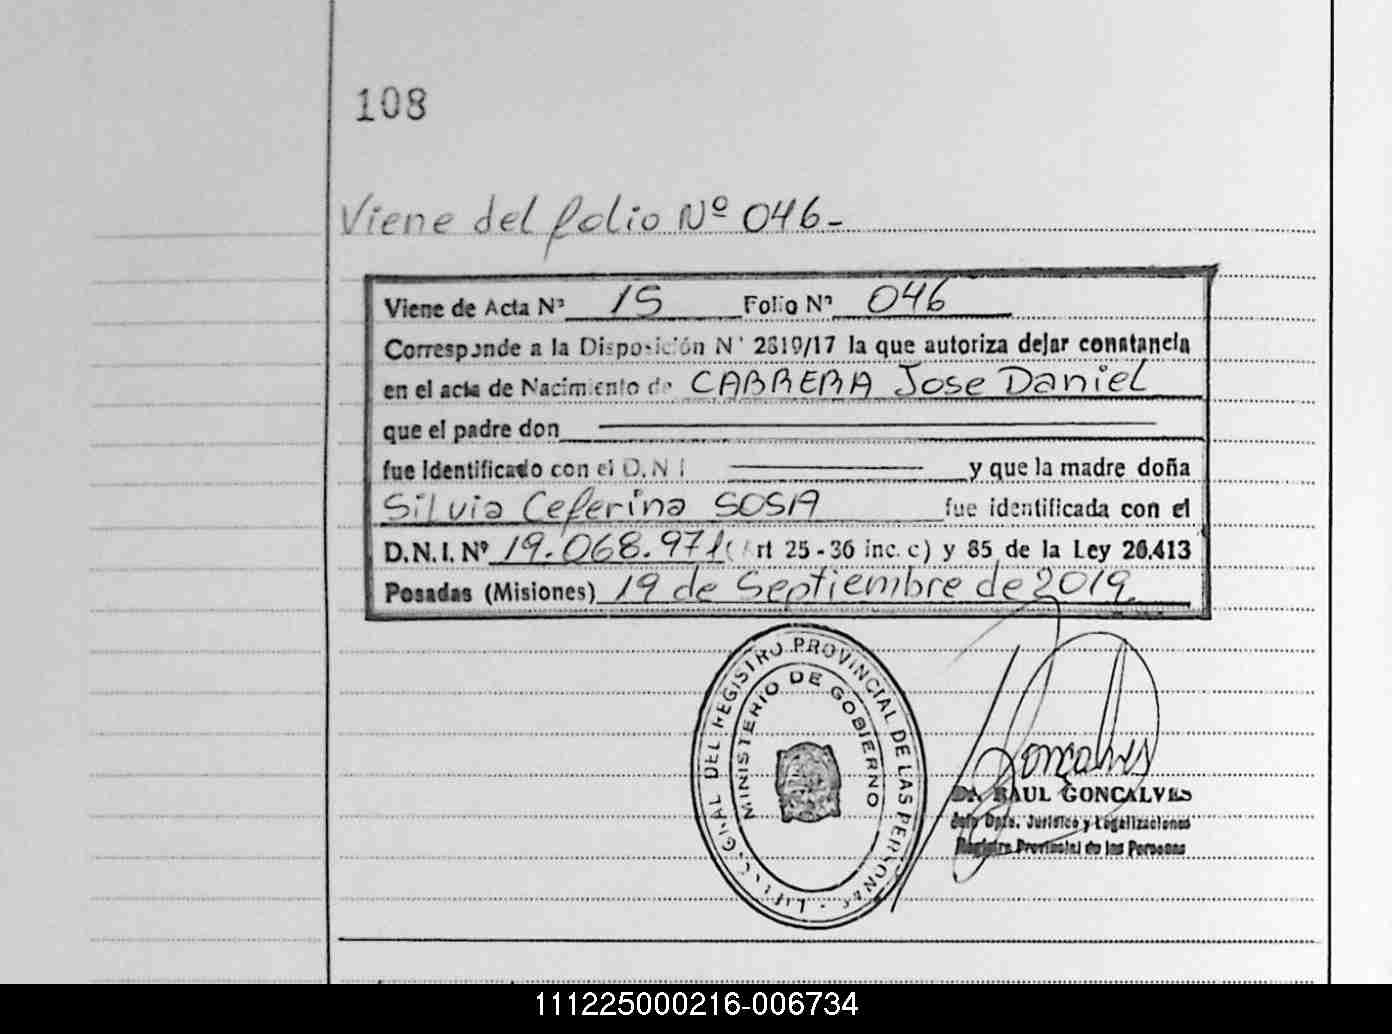 108
Viene del folio Nº 046-
Viene de Acta Nº 15 Folio Nº 046
Corresponde a la Disposición Nº 2610/17 la que autoriza dejar constancia
en el acta de Nacimiento de CABRERA Jose Daniel
que el padre don
fue identificado con el D.N.I. y que la madre doña
Silvia Ceferina SOSA fue identificada con el
D.N.I. Nº 19.068.971 (Art 25-36 inc. c) y 85 de la Ley 26.413
Posadas (Misiones) 19 de Septiembre de 2019.
DEL REGISTRO PROVINCIAL DE LAS PERSONAS
MINISTERIO DE GOBIERNO
Gonçalves
Dr. RAUL GONCALVES
Jefe Dpto. Jurídico y Legalizaciones
Registro Provincial de las Personas
111225000216-006734